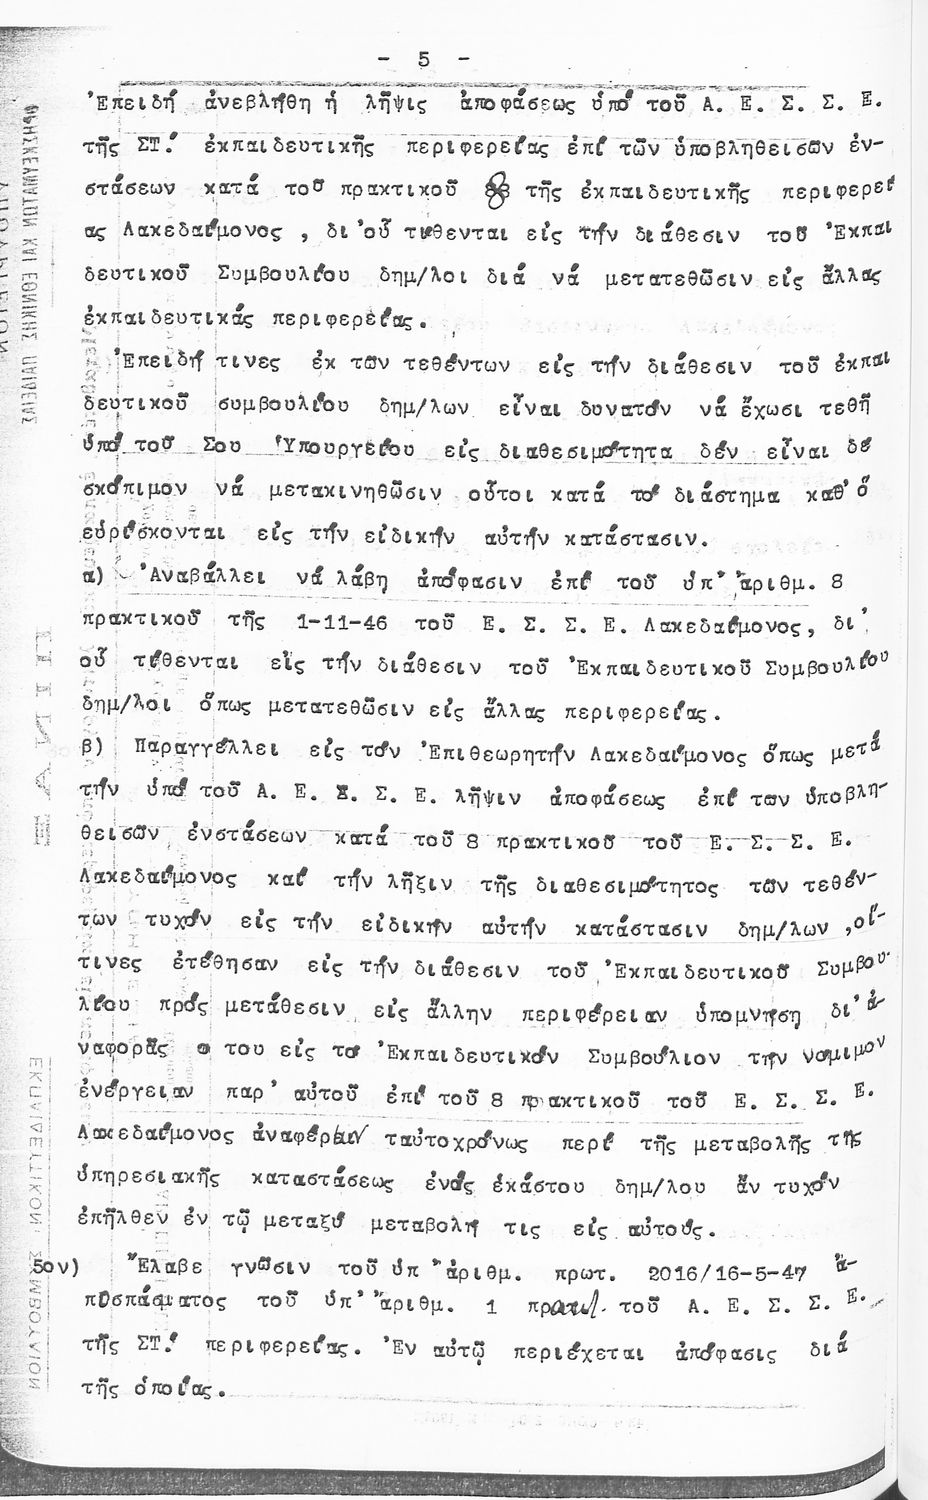 - 5 -
Ἐπειδή ἀνεβλήθη ἡ λῆψις ἀποφάσεως ὑπό τοῦ Α. Ε. Σ. Σ. Ε.
τῆς ΣΤ! ἐκπαιδευτικῆς περιφερείας ἐπί τῶν ὑποβληθεισῶν ἐν-
στάσεων κατά τοῦ πρακτικοῦ 8 τῆς ἐκπαιδευτικῆς περιφερεί
ας Λακεδαίμονος , δι'οὗ τίθενται εἰς τήν διάθεσιν τοῦ Ἐκπαι
δευτικοῦ Συμβουλίου δημ/λοι διά νά μετατεθῶσιν εἰς ἄλλας
ἐκπαιδευτικάς περιφερείας.
Ἐπειδή τινες ἐκ τῶν τεθέντων εἰς τήν διάθεσιν τοῦ ἐκπαι
δευτικοῦ συμβουλίου δημ/λων εἶναι δυνατόν νά ἔχωσι τεθῆ
ὑπό τοῦ Σου Ὑπουργείου εἰς διαθεσιμότητα δέν εἶναι δέ
σκόπιμον νά μετακινηθῶσιν οὗτοι κατά τό διάστημα καθ' ὅ
εὑρίσκονται εἰς τήν εἰδικήν αὐτήν κατάστασιν.
α) Ἀναβάλλει νά λάβη ἀπόφασιν ἐπί τοῦ ὑπ' ἀριθμ. 8
πρακτικοῦ τῆς 1-11-46 τοῦ Ε. Σ. Σ. Ε. Λακεδαίμονος, δι'
οὗ τίθενται εἰς τήν διάθεσιν τοῦ Ἐκπαιδευτικοῦ Συμβουλίου
δημ/λοι ὅπως μετατεθῶσιν εἰς ἄλλας περιφερείας.
β) Παραγγέλλει εἰς τόν Ἐπιθεωρητήν Λακεδαίμονος ὅπως μετά
τήν ὑπό τοῦ Α. Ε. Σ. Σ. Ε. λῆψιν ἀποφάσεως ἐπί των ὑποβλη-
θεισῶν ἐνστάσεων κατά τοῦ 8 πρακτικοῦ τοῦ Ε. Σ. Σ. Ε.
Λακεδαίμονος καί τήν λῆξιν τῆς διαθεσιμότητος τῶν τεθέν-
των τυχόν εἰς τήν εἰδικήν αὐτήν κατάστασιν δημ/λων ,οἵ-
τινες ἐτέθησαν εἰς τήν διάθεσιν τοῦ Ἐκπαιδευτικοῦ Συμβου-
λίου πρός μετάθεσιν εἰς ἄλλην περιφέρειαν ὑπομνήση δι' ἀ-
ναφορᾶς του εἰς τό Ἐκπαιδευτικόν Συμβούλιον την νόμιμον
ἐνέργειαν παρ' αὐτοῦ ἐπί τοῦ 8 πρακτικοῦ τοῦ Ε. Σ. Σ. Ε.
Λακεδαίμονος ἀναφέρων ταὐτοχρόνως περί τῆς μεταβολῆς της
ὑπηρεσιακῆς καταστάσεως ἑνός ἑκάστου δημ/λου ἄν τυχόν
ἐπῆλθεν ἐν τῷ μεταξύ μεταβολή τις εἰς αὐτούς.
5ον) Ἔλαβε γνῶσιν τοῦ ὑπ' ἀριθμ. πρωτ. 2016/16-5-47 ἀ-
ποσπάσματος τοῦ ὑπ' ἀριθμ. 1 πρακτ. τοῦ Α. Ε. Σ. Σ. Ε.
τῆς ΣΤ! περιφερείας. Ἐν αὐτῷ περιέχεται ἀπόφασις διά
τῆς ὁποίας.